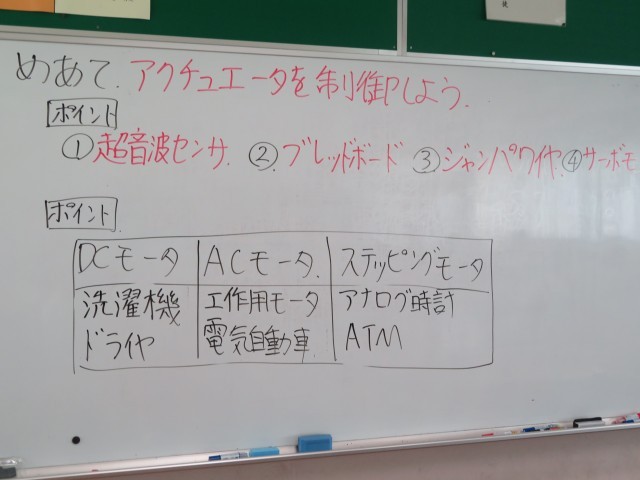 めあて. アクチュエータを制御しよう.
ポイント
①超音波センサ. ②.ブレッドボード ③ジャンパワイヤ.④サーボモ
ポイント
DCモータ ACモータ. ステッピングモータ
洗濯機 工作用モータ アナログ時計
ドライヤ 電気自動車. ATM